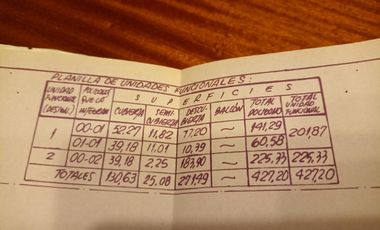 PLANILLA DE UNIDADES FUNCIONALES:
UNIDAD
FUNCIONAL
(DESTINO)
POLIGONOS
QUE LA
INTEGRAN
SUPERFICIES
CUBIERTA
SEMI-
CUBIERTA
DESCU-
BIERTA
BALCÓN
TOTAL
POLIGONO
TOTAL
UNIDAD
FUNCIONAL
1 00-01 52,27 11,82 77,20 ~ 141,29 201,87
01-01 39,18 11,01 10,39 ~ 60,58
2 00-02 39,18 2,25 183,90 ~ 225,33 225,33
TOTALES 130,63 25,08 271,49 ~ 427,20 427,20